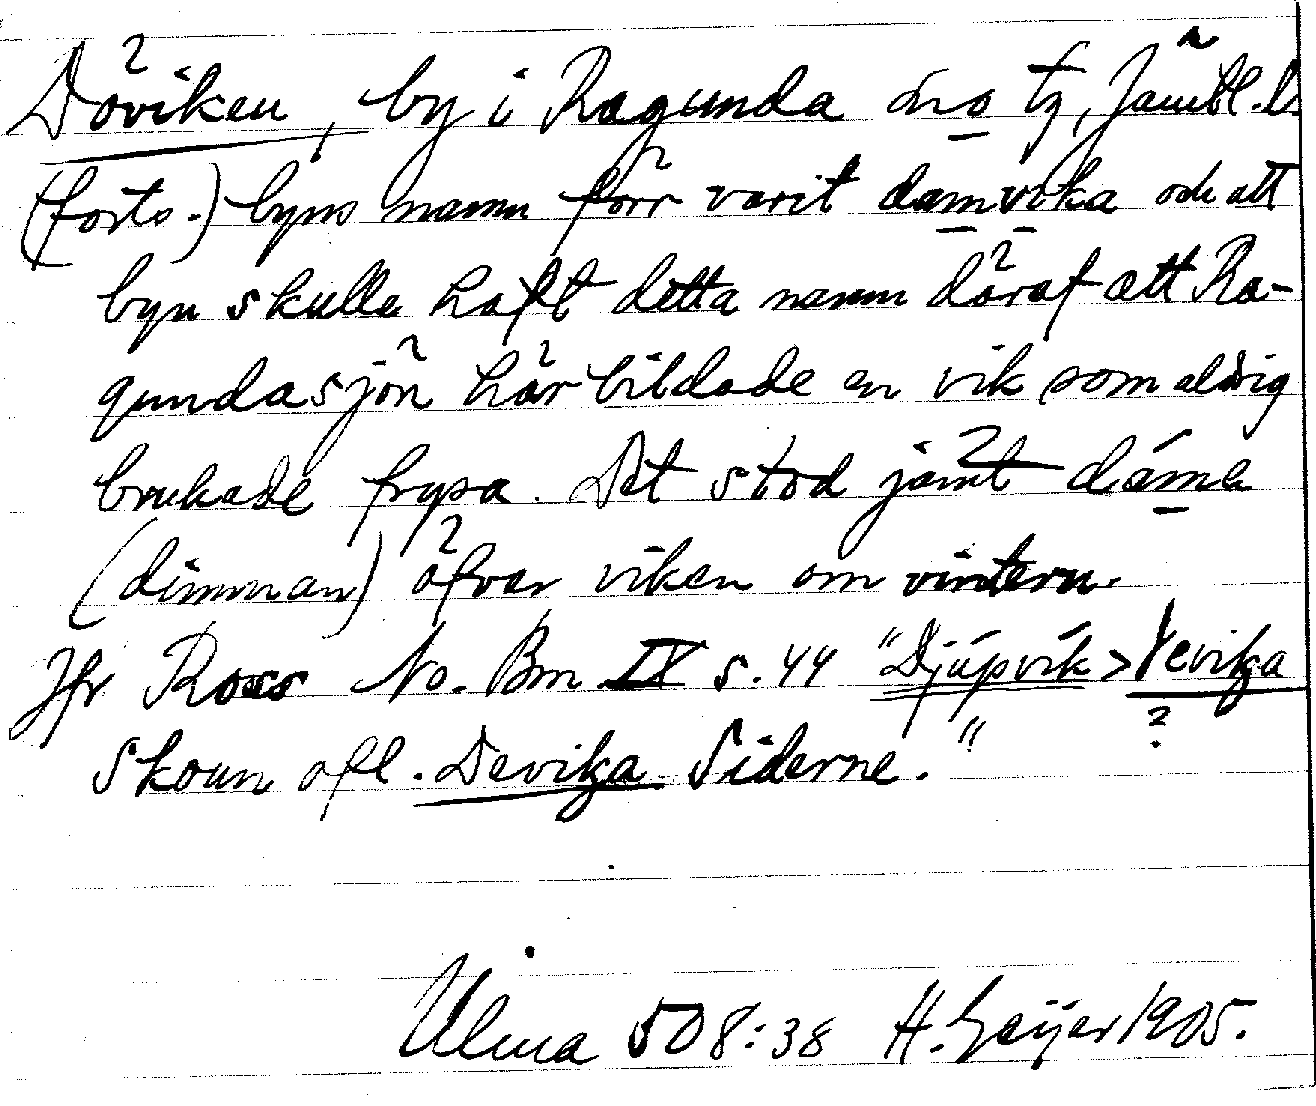 Döviken, by i Ragunda sn o tg, Jämtl. l.
(forts.) byns namn förr varit damvika och att
byn skulle haft detta namn däraf att Ra-
gundasjön här bildade en vik som aldrig
brukade frysa. Det stod jämt dáma
(dimman) öfver viken om vintern.
Jfr Ross No. Bm IX s. 44 "Djúpvík > Devika
Skoun ofl. Devika Siderne."
?
Ulma 508:38 H. Geijer 1905.